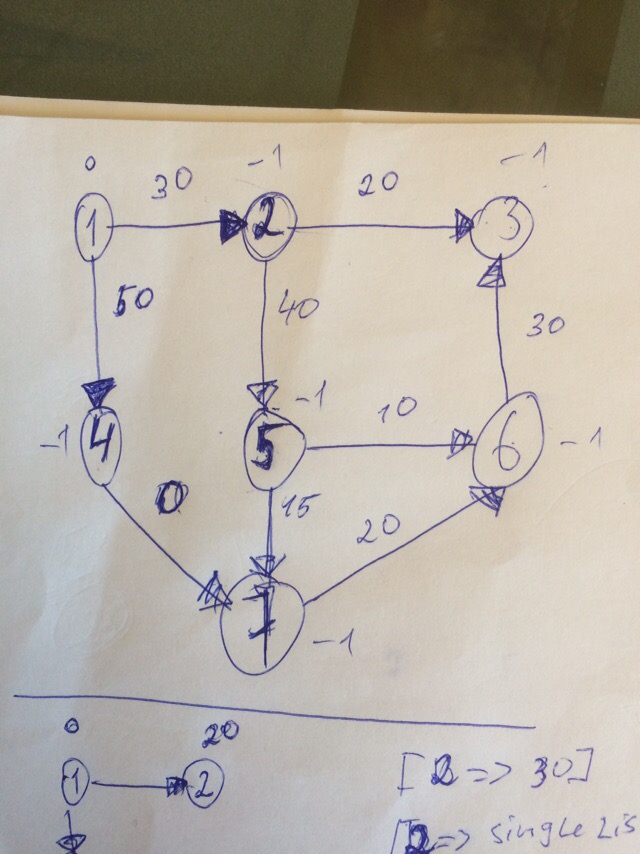 0 -1 -1
30 20
1 2 3
50 40 30
-1 10
-1 4 5 6 -1
0 15 20
7 -1
0 20
1 2 [2 => 30]
[2 => single Lis